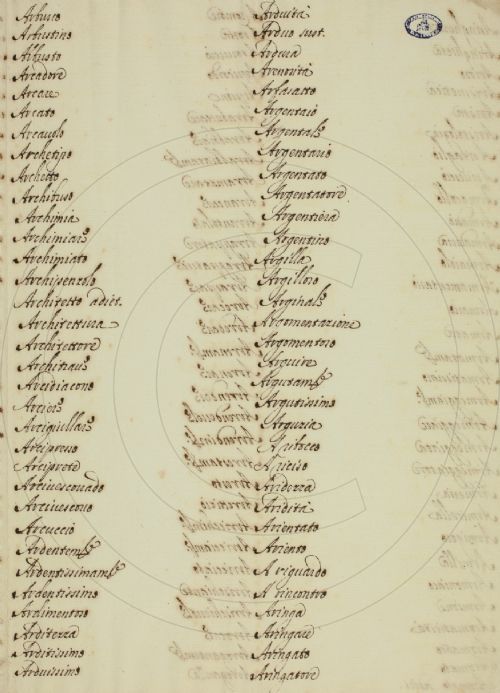 Arbuco
Arbustino
Arbusto
Arcadore
Arcare
Arcato
Arcavolo
Archetipo
Archetto
Archibuso
Archimia
Archimiare
Archimiato
Architetto adiet.
Architettura
Architettore
Arcidiacono
Arcipresso
Arciprete
Arcivescouado
Arcivescouo
Arcuccio
Ardentem.te
Ardentissimam.te
Ardentissimo
Ardimentoso
Arditezza
Arditissimo
Arduissimo
Arduità
Arduo sust.
Argentaio
Argentale
Argentario
Argentato
Argentatore
Argentiera
Argentino
Argilla
Argilloso
Argomentazione
Argomentoso
Arguire
Argutam.te
Argutissimo
Arguzia
Aridezza
Aridità
Arientato
Ariento
A riguardo
A rincontro
Aringa
Aringare
Aringato
Aringatore